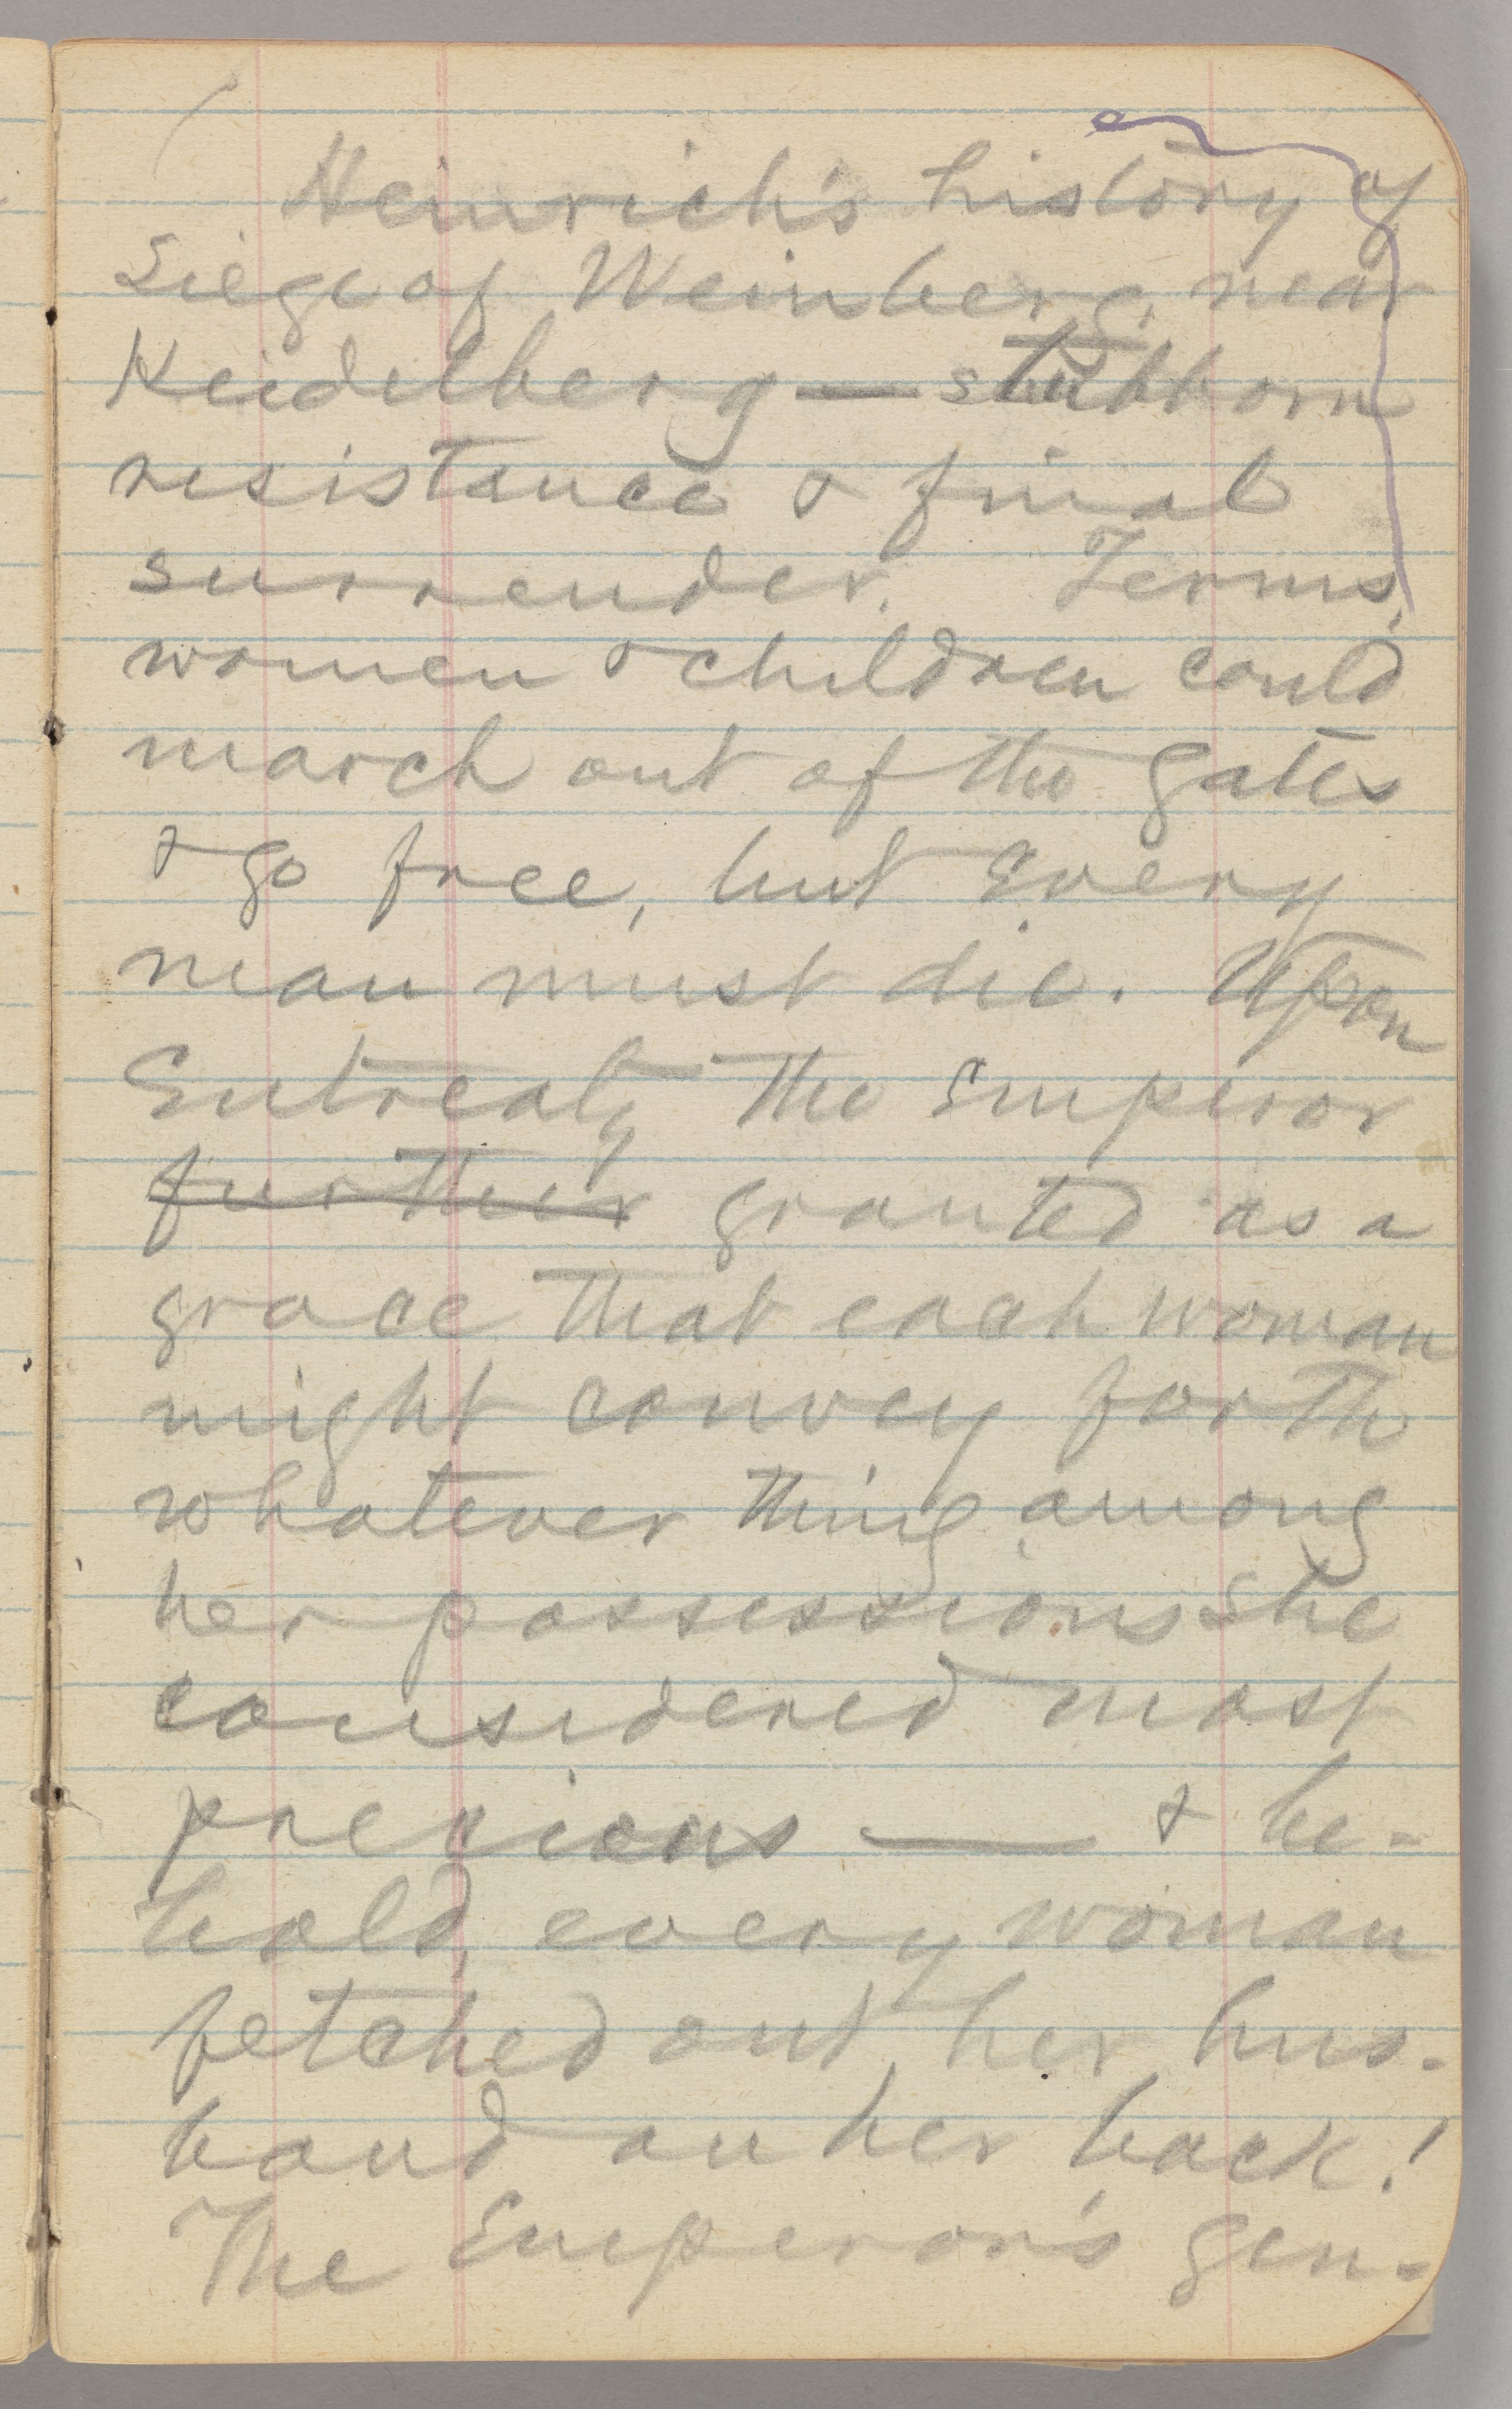 Heinrich's history of
Siege of Weinberg, near
Heidelberg — stubborn
resistance & final
surrender. Terms,
women & children could
march out of the gates
& go free, but every
man must die. Upon
Entreaty the Emperor
further granted as a
grace that each woman
might convey forth
whatever thing among
her possessions she
considered most
precious — & be-
hold, every woman
fetched out her hus-
band on her back!
The Emperor's gen-